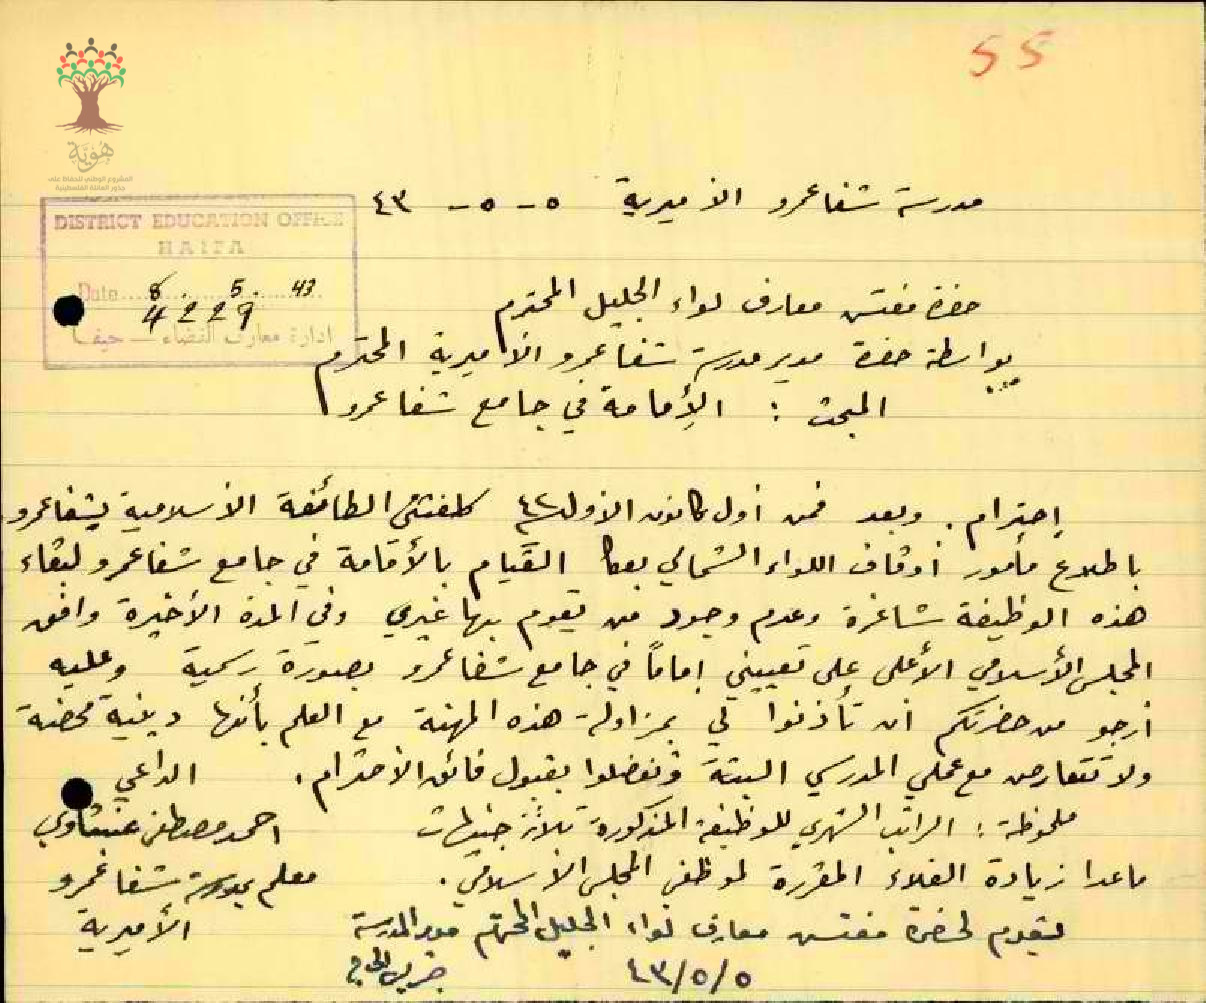 55
هوية
المشروع الوطني للحفاظ على
جذور العائلة الفلسطينية
مدرسة شفاعمرو الأميرية ٥ - ٥ - ٤٣
DISTRICT EDUCATION OFFICE
HAIFA
Date 8. 5. 43
4229
ادارة معارف القضاء — حيفا
حضرة مفتش معارف لواء الجليل المحترم
بواسطة حضرة مدير مدرسة شفاعمرو الأميرية المحترم
المبحث : الإمامة في جامع شفاعمرو
إحترام . وبعد فمن أول كانون الأول ٤٢ كلفتني الطائفة الأسلامية بشفاعمرو
باطلاع مأمور أوقاف اللواء الشمالي بعكا القيام بالأقامة في جامع شفاعمرو لبقاء
هذه الوظيفة شاغرة وعدم وجود من يقوم بها غيري وفي المدة الأخيرة وافق
المجلس الأسلامي الأعلى على تعييني إماماً في جامع شفاعمرو بصورة رسمية وعليه
أرجو من حضرتكم أن تأذنوا لي بمزاولة هذه المهنة مع العلم بأنها دينية محضة
ولا تتعارض مع عملي المدرسي البتة وتفضلوا بقبول فائق الأحترام . الداعي
ملحوظة : الراتب الشهري للوظيفة المذكورة ثلاثة جنيهات
احمد مصطفى عنبتاوي
ماعدا زيادة الغلاء المقررة لموظفي المجلس الأسلامي .
معلم بمدرسة شفاعمرو
الأميرية
ليقدم لحضرة مفتش معارف لواء الجليل المحترم مدير المدرسة
٤٣/٥/٥